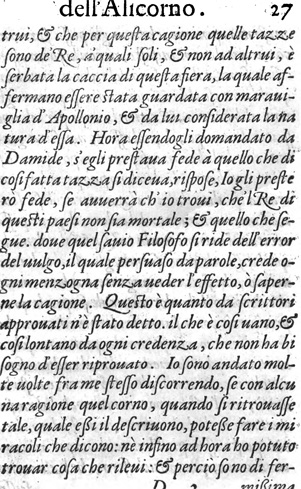 dell'Alicorno. 27
trui, & che per questa cagione quelle tazze
sono de' Re, a' quali soli, & non ad altrui, è
serbata la caccia di questa fiera, la quale af-
fermano essere stata guardata con maraui-
glia d'Apollonio, & da lui considerata la na
tura d'essa. Hora essendogli domandato da
Damide, s'egli prestaua fede à quello che di
cosi fatta tazza si diceua, rispose, Io gli preste
rò fede, se auuerrà ch'io troui, che'l Re di
questi paesi non sia mortale; & quello che se-
gue. doue quel sauio Filosofo si ride dell'error
del uulgo, il quale persuaso da parole, crede o-
gni menzogna senza ueder l'effetto, ò saper-
ne la cagione. Questo è quanto da scrittori
approuati n'è stato detto. il che è cosi uano, &
cosi lontano da ogni credenza, che non ha bi
sogno d'esser riprouato. Io sono andato mol-
te uolte fra me stesso discorrendo, se con alcu
na ragione quel corno, quando si ritrouasse
tale, quale essi il descriuono, potesse fare i mi
racoli che dicono: nè infino ad hora ho potuto
trouar cosa che rileui: & perciò sono di fer-
D 2 missima